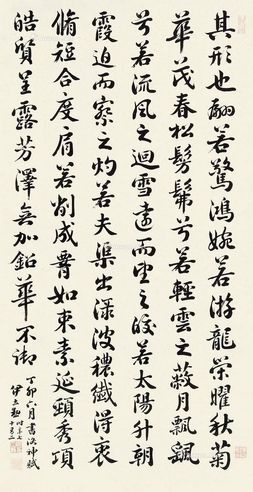 其形也翩若驚鴻婉若游龍榮曜秋菊
華茂春松髣髴兮若輕雲之蔽月飄飄
兮若流風之迴雪遠而望之皎若太陽升朝
霞迫而察之灼若夫渠出淥波穠纖得衷
脩短合度肩若削成署如束素延頸秀項
皓質呈露芳澤無加鉛華不御
丁卯六月書洛神賦
伊立勳